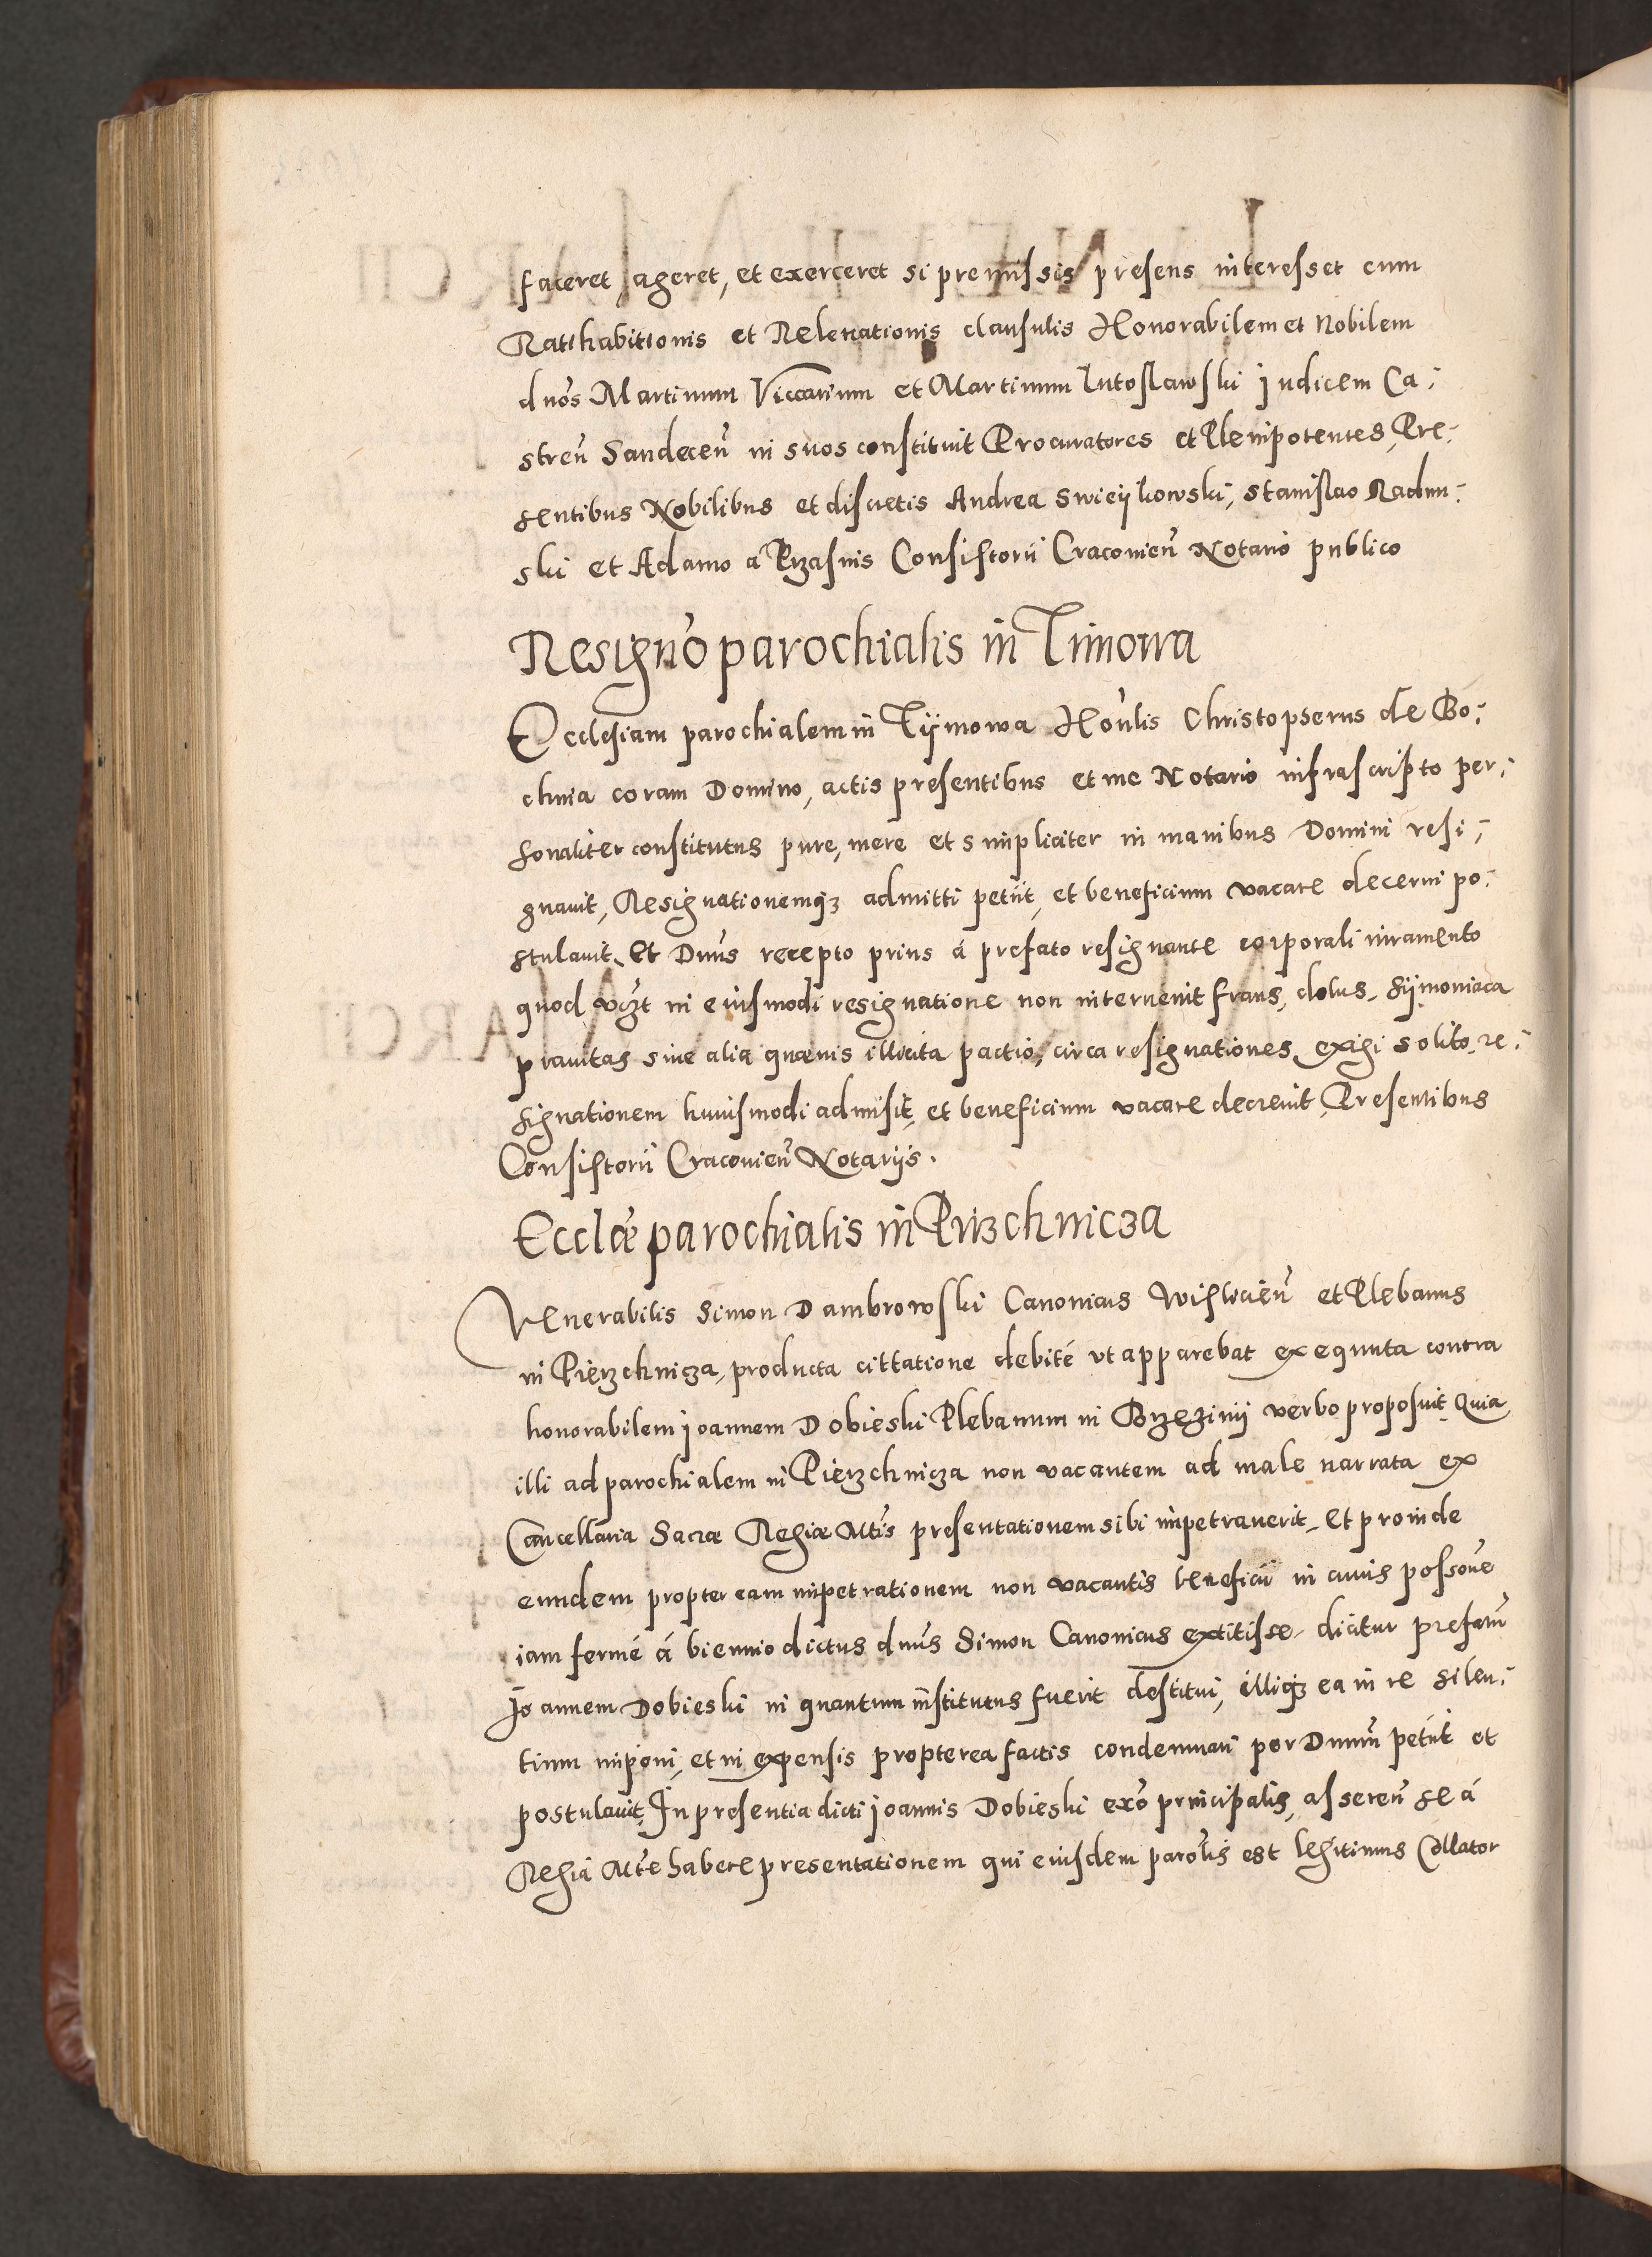 faceret, ageret, et exerceret si premissis presens interesset cum
Ratihabitionis et Relevationis clausulis Honorabilem et Nobilem
dnos Martinum Viccarium et Martinum Lutoslawski Judicem Ca-
stren Sandecen in suos constituit Procuratores et Plenipotentes, Pre-
sentibus Nobilibus et discretis Andrea Swieykowski, Stanislao Radun-
ski et Adamo à Rzasnis Consistorii Cracovien Notario publico
Resigno parochialis in Timowa
Ecclesiam parochialem in Tymowa Honlis Christopherus de Bo-
chnia coram Domino, actis presentibus et me Notario infrascripto per-
sonaliter constitutus pure, mere et simpliciter in manibus Domini resi-
gnavit, Resignationemq3 admitti petiit, et beneficium vacare decerni po-
stulavit. Et Dnus recepto prius à prefato resignante corporali iuramento
quod vc3t in eiusmodi resignatione non intervenit fraus, dolus, Symoniaca
pravitas sive alia quævis illicita pactio, circa resignationes exigi solito, re-
signationem huiusmodi admisit, et beneficium vacare decrevit, Presentibus
Consistorii Cracovien Notariis.
Ecclæ parochialis in Pirzchnicza
Venerabilis Simon Dambrowski Canonicus Wislicien et Plebanus
in Pierzchnicza, producta cittatione debité ut apparebat exequuta contra
honorabilem Joannem Dobieski Plebanum in Brzeziny verbo proposuit Quia
illi ad parochialem in Pierzchnicza non vacantem ad male narrata ex
Cancellaria Sacræ Regiæ Mtis presentationem sibi impetraverit, et proinde
eundem propter eam impetrationem non vacantis beneficii in cuius possone
iam fermé á biennio dictus dnus Simon Canonicus extitisse dicitur prefatu
Joannem Dobieski in quantum institutus fuerit destitui, illiq3 ea in re silen-
tium imponi, et in expensis propterea factis condemnari per Dnum petiit et
postulavit, In presentia dicti Joannis Dobieski exo principalis, asseren se á
Regia Mte habere presentationem qui eiusdem parolis est legitimus Collator